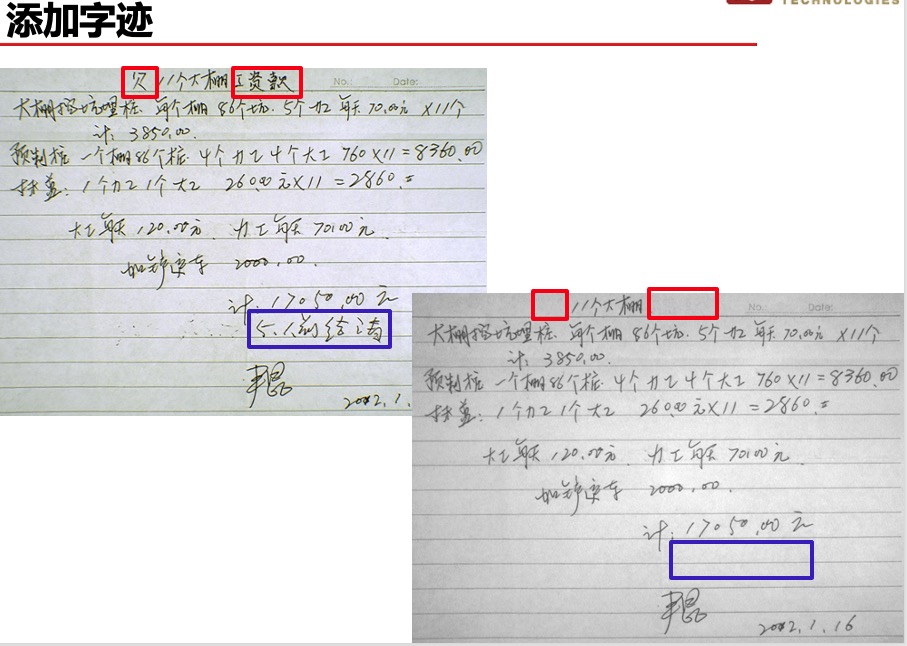 添加字迹
TECHNOLOGIES
欠11个大棚工资款 No.: Date:
大棚挖坑埋桩. 每个棚86个坑. 5个力工 每天70.00元 ×11个
计: 3850.00.
预制桩 一个棚86个桩. 4个力工 4个大工 760×11=8360.00
扶盖: 1个力工 1个大工 260.00元×11=2860.=
大工每天120.00元. 力工每天70.00元.
2000.00.
计: 17050.00元
5.1前结清
2012.1.
11个大棚 No.: Date:
大棚挖坑埋桩. 每个棚86个坑. 5个力工 每天70.00元 ×11个
计: 3850.00.
预制桩 一个棚86个桩. 4个力工 4个大工 760×11=8360.00
扶盖: 1个力工 1个大工 260.00元×11=2860.=
大工每天120.00元. 力工每天70.00元.
2000.00.
计: 17050.00元
2012.1.16